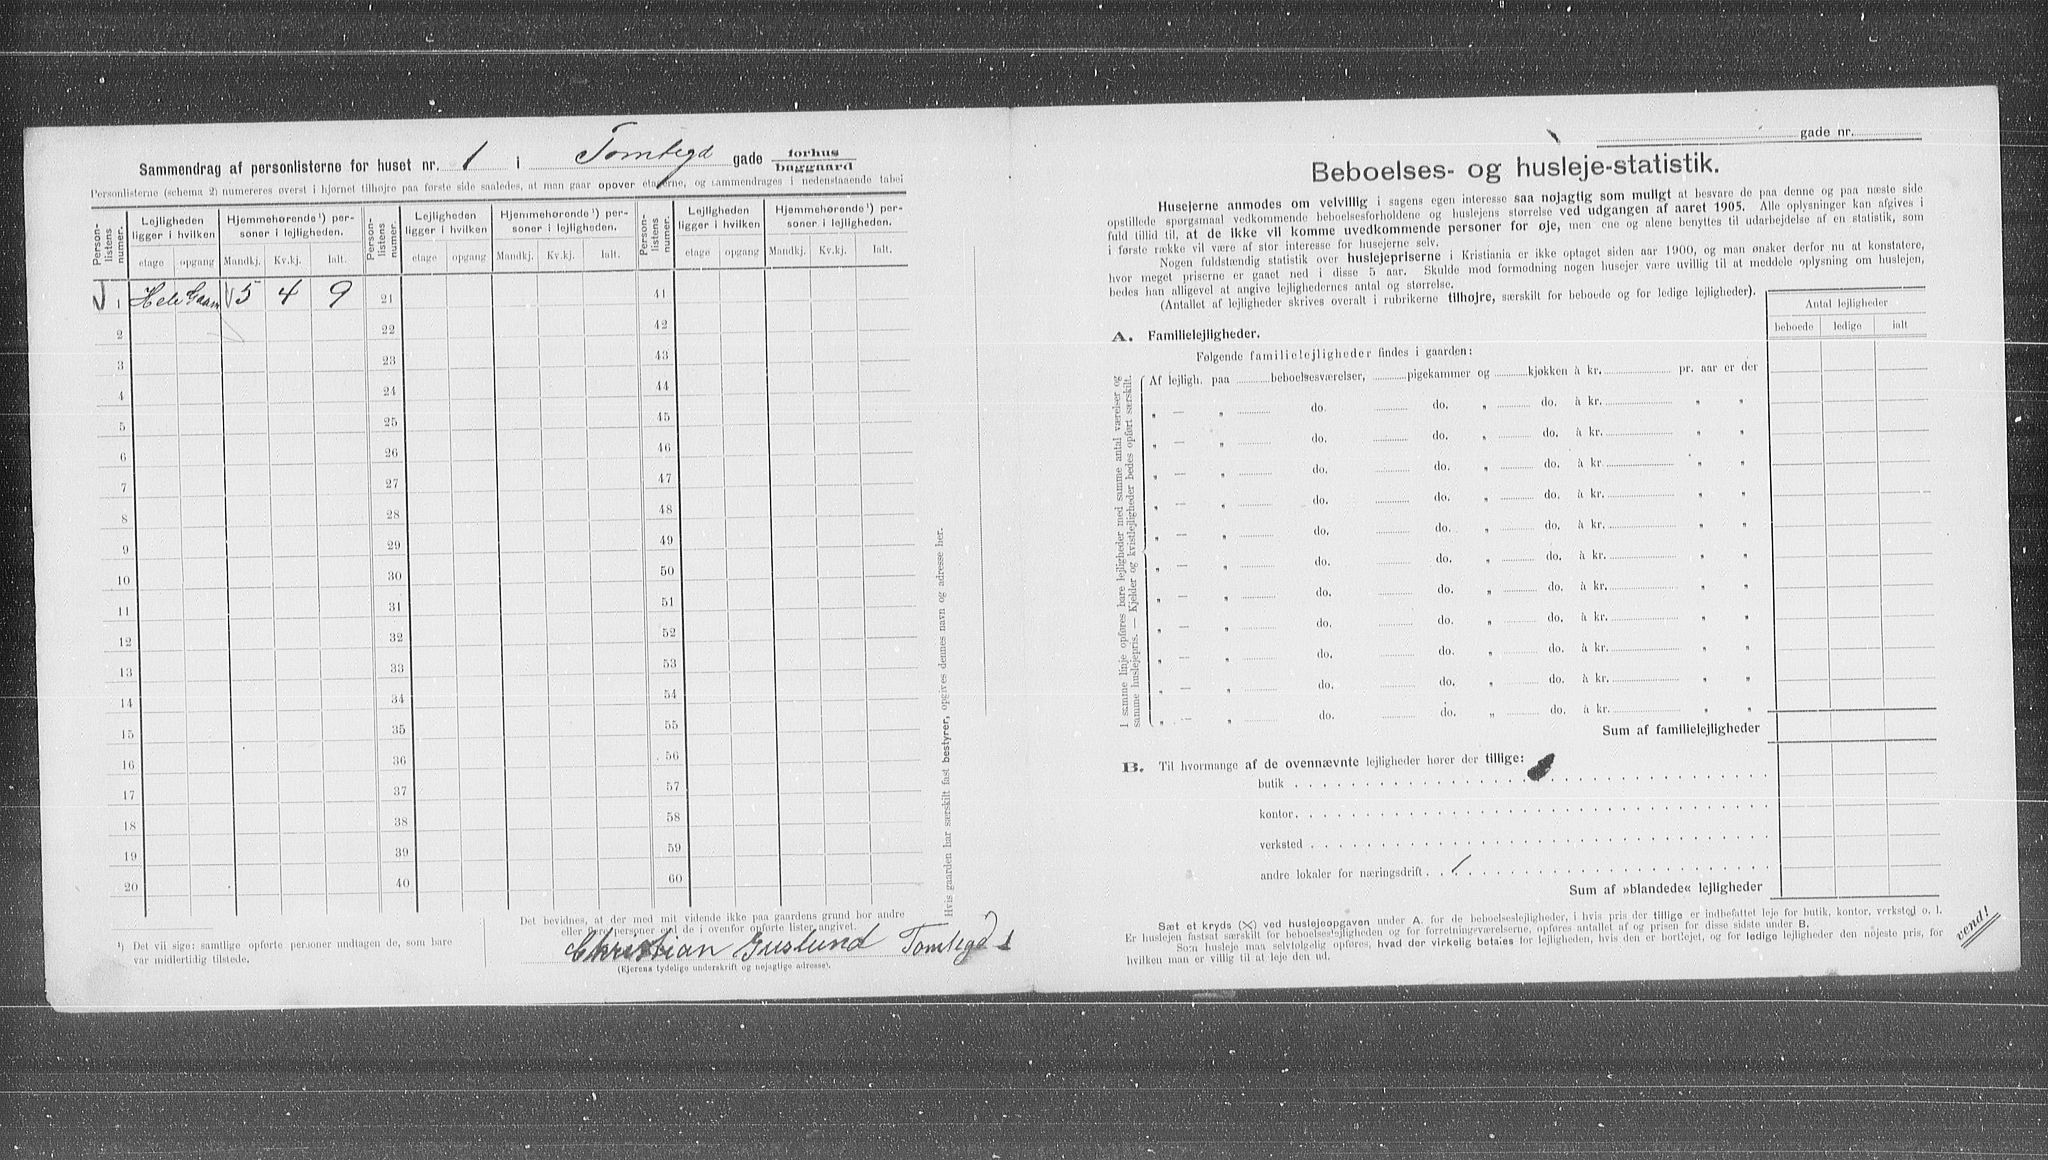 Sammendrag af personlisterne for huset nr. 1 i Tomtegd gade forhus
baggaard
Personlisterne (schema 2) numereres øverst i hjørnet tilhøjre paa første side saaledes, at man gaar opover etagerne, og sammendrages i nedenstaaende tabel
Person-listens nummer. Lejligheden ligger i hvilken Hjemmehørende ¹) personer i lejligheden. Person-listens numer. Lejligheden ligger i hvilken Hjemmehørende ¹) personer i lejligheden. Person-listens numer. Lejligheden ligger i hvilken Hjemmehørende ¹) personer i lejligheden.
etage opgang Mandkj. Kv.kj. Ialt. etage opgang Mandkj. Kv.kj. Ialt. etage opgang Mandkj. Kv.kj. Ialt.
1 Hele Gaarn 5 4 9 21 41
2 22 42
3 23 43
4 24 44
5 25 45
6 26 46
7 27 47
8 28 48
9 29 49
10 30 50
11 31 51
12 32 52
13 33 53
14 34 54
15 35 55
16 36 56
17 37 57
18 38 58
19 39 59
20 40 60
Hvis gaarden har særskilt fast bestyrer, opgives dennes navn og adresse her.
¹) Det vil sige: samtlige opførte personer undtagen de, som bare
var midlertidig tilstede.
Det bevidnes, at der med mit vidende ikke paa gaardens grund bor andre
eller flere personer end de i ovenfor opførte lister angivet.
Christian Guslund Tomtegd 1
(Ejerens tydelige underskrift og nøjagtige adresse).
gade nr.
Beboelses- og husleje-statistik.
Husejerne anmodes om velvillig i sagens egen interesse saa nøjagtig som muligt at besvare de paa denne og paa næste side
opstillede spørgsmaal vedkommende beboelsesforholdene og huslejens størrelse ved udgangen af aaret 1905. Alle oplysninger kan afgives i
fuld tillid til, at de ikke vil komme uvedkommende personer for øje, men ene og alene benyttes til udarbejdelse af en statistik, som
i første række vil være af stor interesse for husejerne selv.
Nogen fuldstændig statistik over huslejepriserne i Kristiania er ikke optaget siden aar 1900, og man ønsker derfor nu at konstatere,
hvor meget priserne er gaaet ned i disse 5 aar. Skulde mod formodning nogen husejer være uvillig til at meddele oplysning om huslejen,
bedes han alligevel at angive lejlighedernes antal og størrelse.
(Antallet af lejligheder skrives overalt i rubrikerne tilhøjre, særskilt for beboede og for ledige lejligheder).
Antal lejligheder
beboede ledige ialt
A. Familielejligheder.
Følgende familielejligheder findes i gaarden:
I samme linje opføres bare lejligheder med samme antal værelser og
samme huslejepris. — Kjelder og kvistlejligheder bedes opført særskilt.
Af lejligh. paa beboelsesværelser, pigekammer og kjøkken à kr. pr. aar er der
„ — „ do. do. „ do. à kr. „ „
„ — „ do. do. „ do. à kr. „ „
„ — „ do. do. „ do. à kr. „ „
„ — „ do. do. „ do. à kr. „ „
„ — „ do. do. „ do. à kr. „ „
„ — „ do. do. „ do. à kr. „ „
„ — „ do. do. „ do. à kr. „ „
„ — „ do. do. „ do. à kr. „ „
„ — „ do. do. „ do. à kr. „ „
„ — „ do. do. „ do. à kr. „ „
„ — „ do. do. „ do. à kr. „ „
Sum af familielejligheder
B. Til hvormange af de ovennævnte lejligheder hører der tillige:
butik
kontor
verksted
andre lokaler for næringsdrift 1
Sum af »blandede« lejligheder
Sæt et kryds (X) ved huslejeopgaven under A. for de beboelseslejligheder, i hvis pris der tillige er indbefattet leje for butik, kontor, verksted o. l.
Er huslejen fastsat særskilt for beboelseslejligheden og for forretningsværelserne, opføres antallet af og prisen for disse sidste under B.
Som husleje maa selvfølgelig opføres, hvad der virkelig betales for lejligheden, hvis den er bortlejet, og for ledige lejligheder den nøjeste pris, for
hvilken man er villig til at leje den ud.
vend!